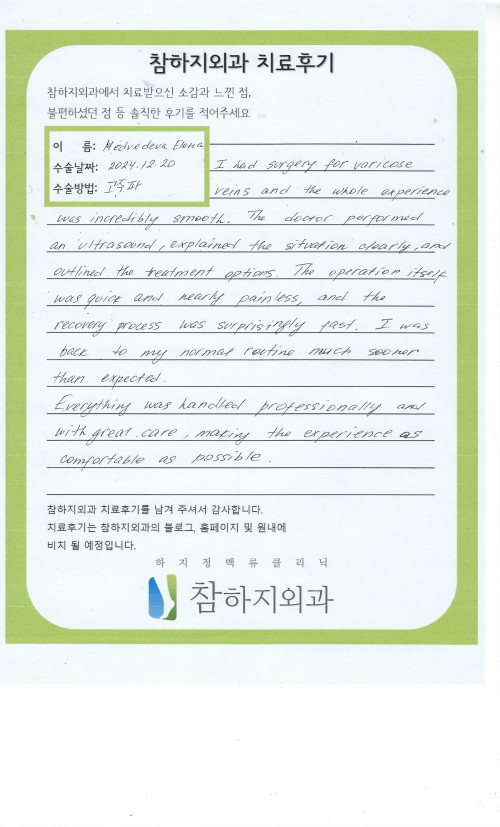 참하지외과 치료후기
참하지외과에서 치료받으신 소감과 느낀 점,
불편하셨던 점 등 솔직한 후기를 적어주세요
이 름: Medvedeva Elena
수술날짜: 2024.12.20
수술방법: 고주파
I had surgery for varicose
veins and the whole experience
was incredibly smooth. The doctor performed
an ultrasound, explained the situation clearly, and
outlined the treatment options. The operation itself
was quick and nearly painless, and the
recovery process was surprisingly fast. I was
back to my normal routine much sooner
than expected.
Everything was handled professionally and
with great care, making the experience as
comfortable as possible.
참하지외과 치료후기를 남겨 주셔서 감사합니다.
치료후기는 참하지외과의 블로그, 홈페이지 및 원내에
비치 될 예정입니다.
하지정맥류클리닉
참하지외과